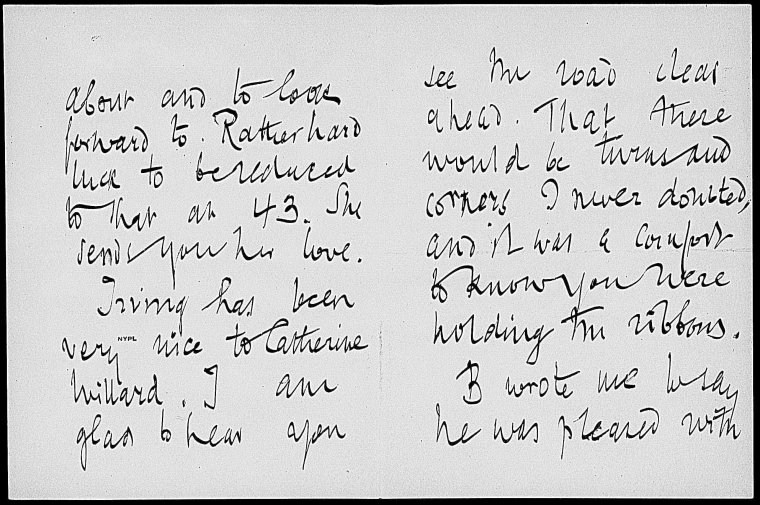 about and to look
forward to. Rather hard
luck to be reduced
to that at 43. She
sends you her love.
Irving has been
very nice to Catherine
Willard. I am
glad to hear you
see the road clear
ahead. That there
would be turns and
corners I never doubted,
and it was a comfort
to know you were
holding the ribbons.
B wrote me to say
he was pleased with
NYPL